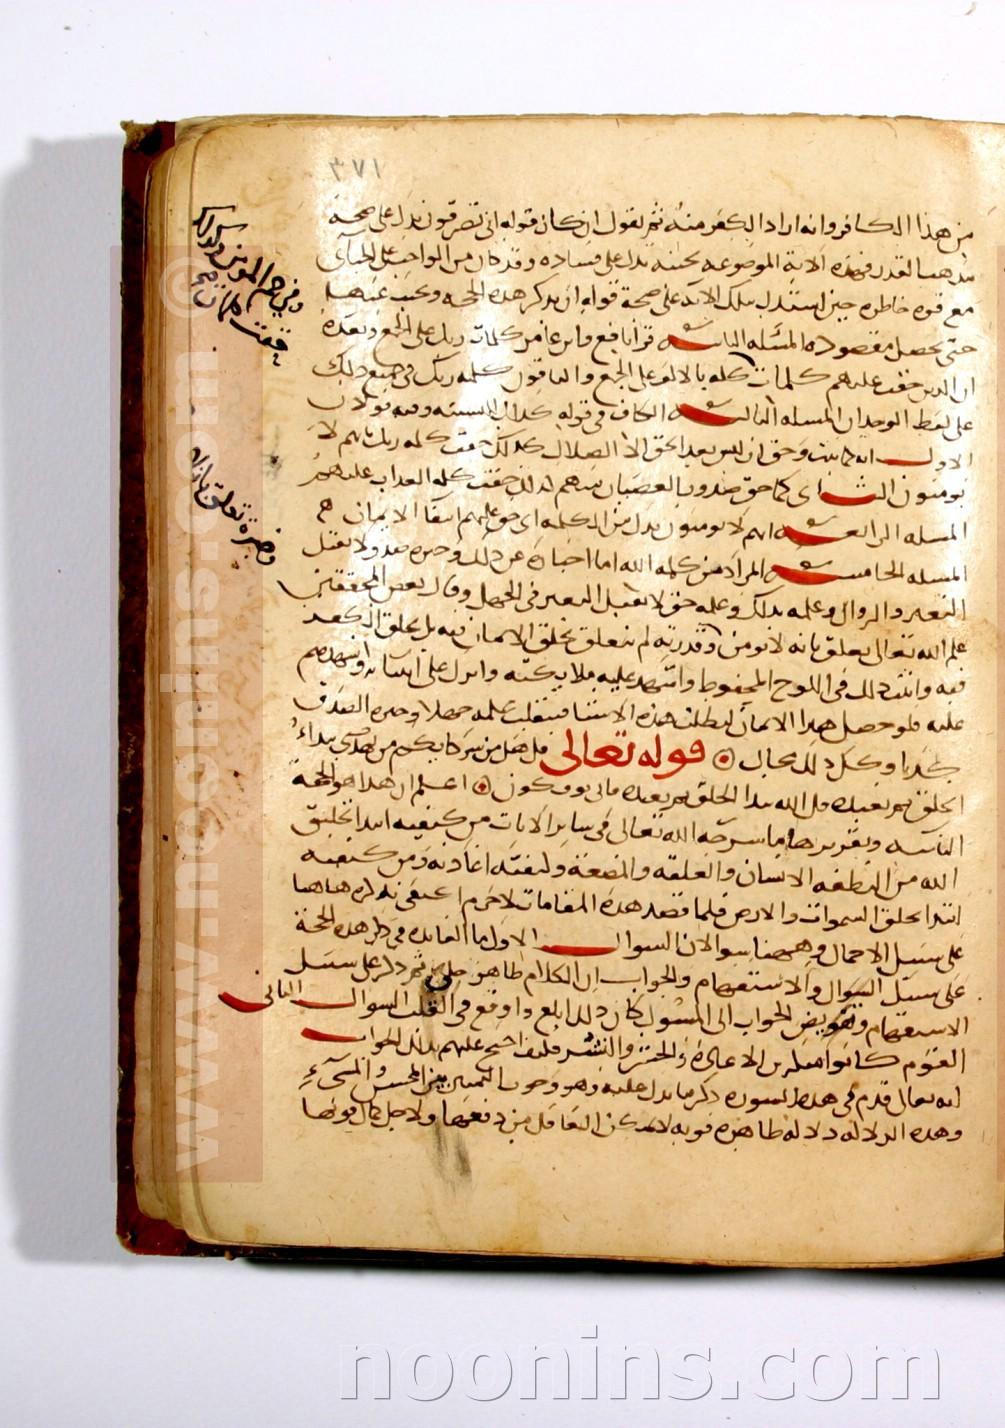 ٣٧١
من هذا الكافر وانه اراد الكفر منه ثم نقول ان كان قوله انى تصرفون يدل على صحة
مذهب القدر فهذه الاية الموضوعه بجنبه تدل على فساده وقد كان من الواجب على الجبائى
مع قوة خاطره حين استدل بتلك الآيه على صحة قوله ان يذكر هذه الحجه ويجيب عنها
حتى يحصل مقصوده المسئله الثانيه قرأ نافع وابن عامر كلمات ربك على الجمع وبعده
ان الذين حقت عليهم كلمات كله بالالف على الجمع والباقون كلمه ربك فى جميع ذلك
على لفظ الوحدان المسله الثالثه الكاف فى قوله كذلك للتشبيه وفيه قولان
الاول انه كما ثبت وحق انه ليس بعد الحق الا الضلال كذلك حقت كلمه ربك بانهم لا
يومنون الثانى كما حق صدور العصيان منهم كذلك حقت كلمه العذاب عليهم
المسله الرابعه انهم لا يومنون بدل من الكلمه اى حق عليهم انتفا الايمان
المسله الخامسه المراد من كلمه الله اما اخباره عن ذلك وخبره صدق لا يقبل
التغير والزوال وعلمه بذلك وعلمه حق لا يقبل التغير فى الجهل وقال بعض المحققين
علم الله تعالى تعلق بانه لا يومن وقدرته لم تتعلق بخلق الايمان فيه بل بخلق الكفر
فيه واثبت ذلك فى اللوح المحفوظ واشهد عليه ملايكته وانزل على انبيائه واشهدهم
عليه فلو حصل هذا الايمان لبطلت هذه الاشيا فينقلب علمه جهلا وخبره الصدق
كذبا وكل ذلك محال قوله تعالى قل هل من شركايكم من يهدى يبداء
الخلق ثم يعيده قل الله يبدا الخلق ثم يعيده فانى يوفكون اعلم ان هذا هو الحجة
الثانيه وتقريرها ما شرحه الله تعالى فى سائر الايات من كيفيه ابتدا تخليق
الله من النطفه الانسان والعلقه والمضغة وكيفيه اعادته ومن كيفيه
ابتدا خلق السموات والارض فلما فصل هذه المقامات لاجرم اكتفى بذكره هاهنا
على سبيل الاجمال وههنا سوالان السوال الاول ما الفايده فى ذكر هذه الحجة
على سبيل السوال والاستفهام والجواب ان الكلام اذا كان ظاهرا جليا ثم ذكر على سبيل
الاستفهام وتفويض الجواب الى المسئول كان ذلك ابلغ واوقع فى القلب السوال الثانى
القوم كانوا منكرين الاعادة والحشر والنشر فكيف احتج عليهم بذلك الجواب
انه تعالى قدم فى هذه السوره ذكر ما يدل عليه وهو وجوب التمييز بين المحسن والمسىء
وهذه الدلاله دلاله ظاهره قويه لا يمكن العاقل من دفعها ولاجل كمال قوتها
وفى حم المومن وكذلك
حقت كلمات
وخبره تعلق بانه
www.noonins.com ©
noonins.com